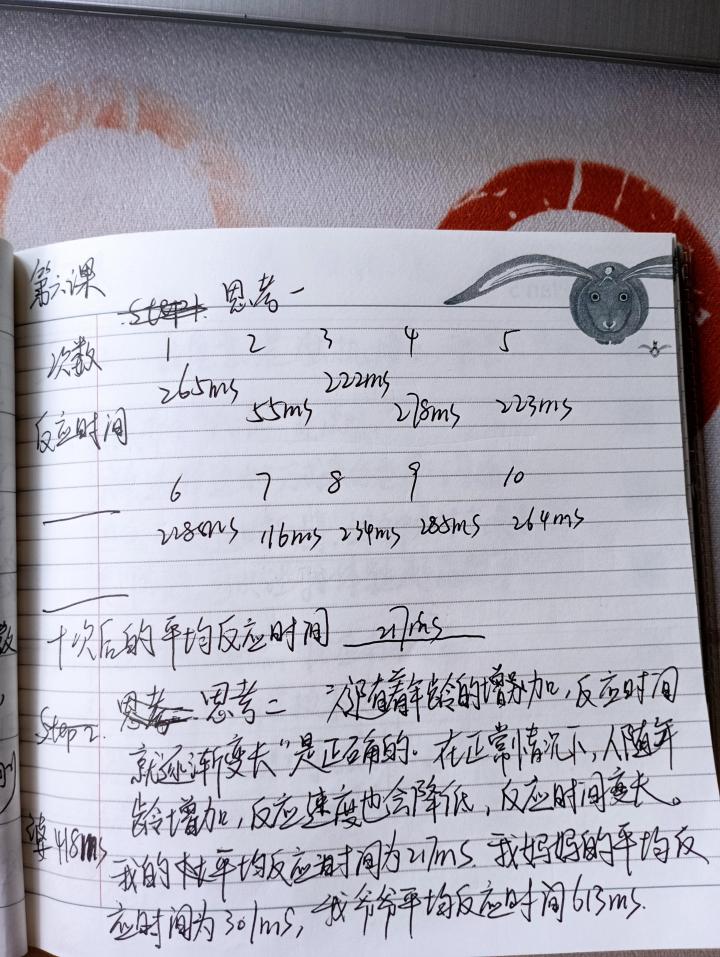 第六课
思考一
次数 1 2 3 4 5
265ms 222ms
反应时间 55ms 278ms 223ms
6 7 8 9 10
228ms 116ms 234ms 288ms 264ms
十次后的平均反应时间 217ms
Step 2. 思考二 "随着年龄的增加,反应时间
就逐渐变长"是正确的。在正常情况下,人随年
龄增加,反应速度也会降低,反应时间变长。
418ms 我的平均反应时间为217ms. 我妈妈的平均反
应时间为301ms, 我爷爷平均反应时间613ms.